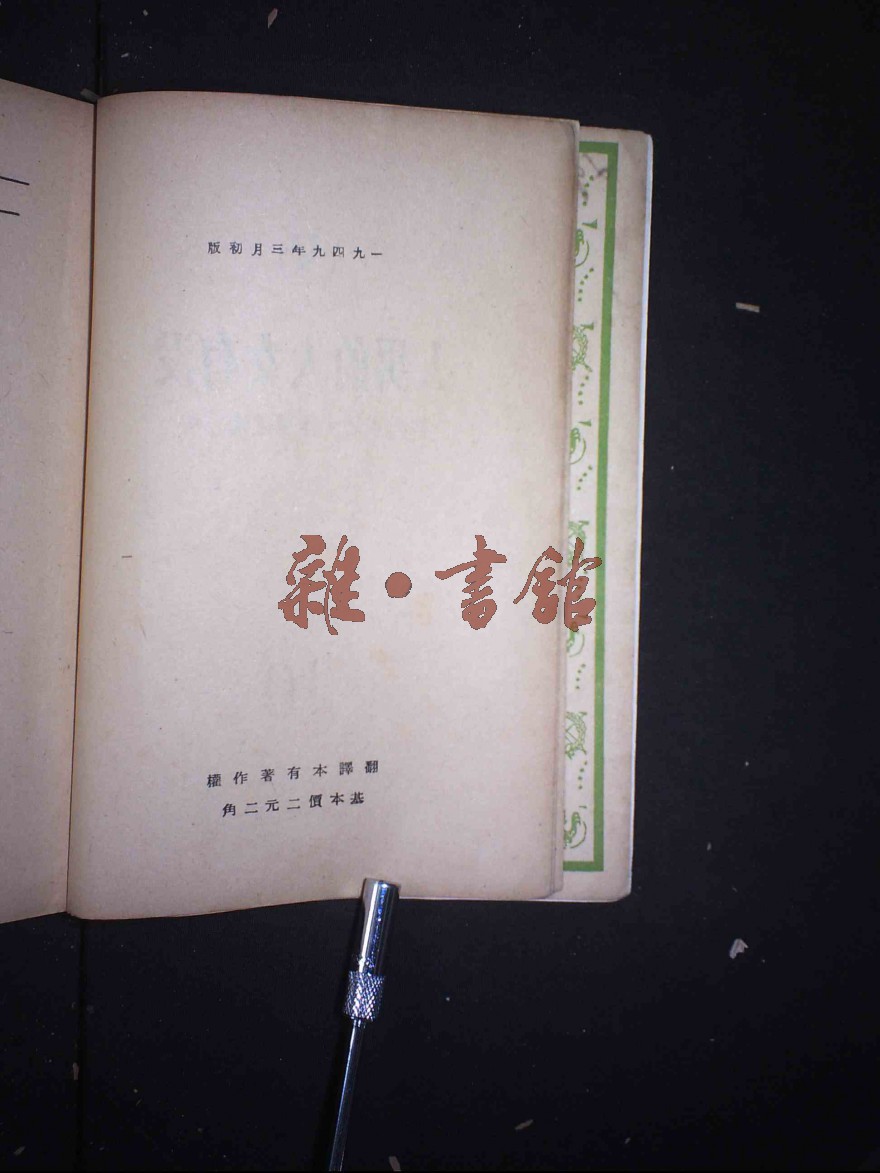 一九四九年三月初版
雜·書館
翻譯本有著作權
基本價二元二角